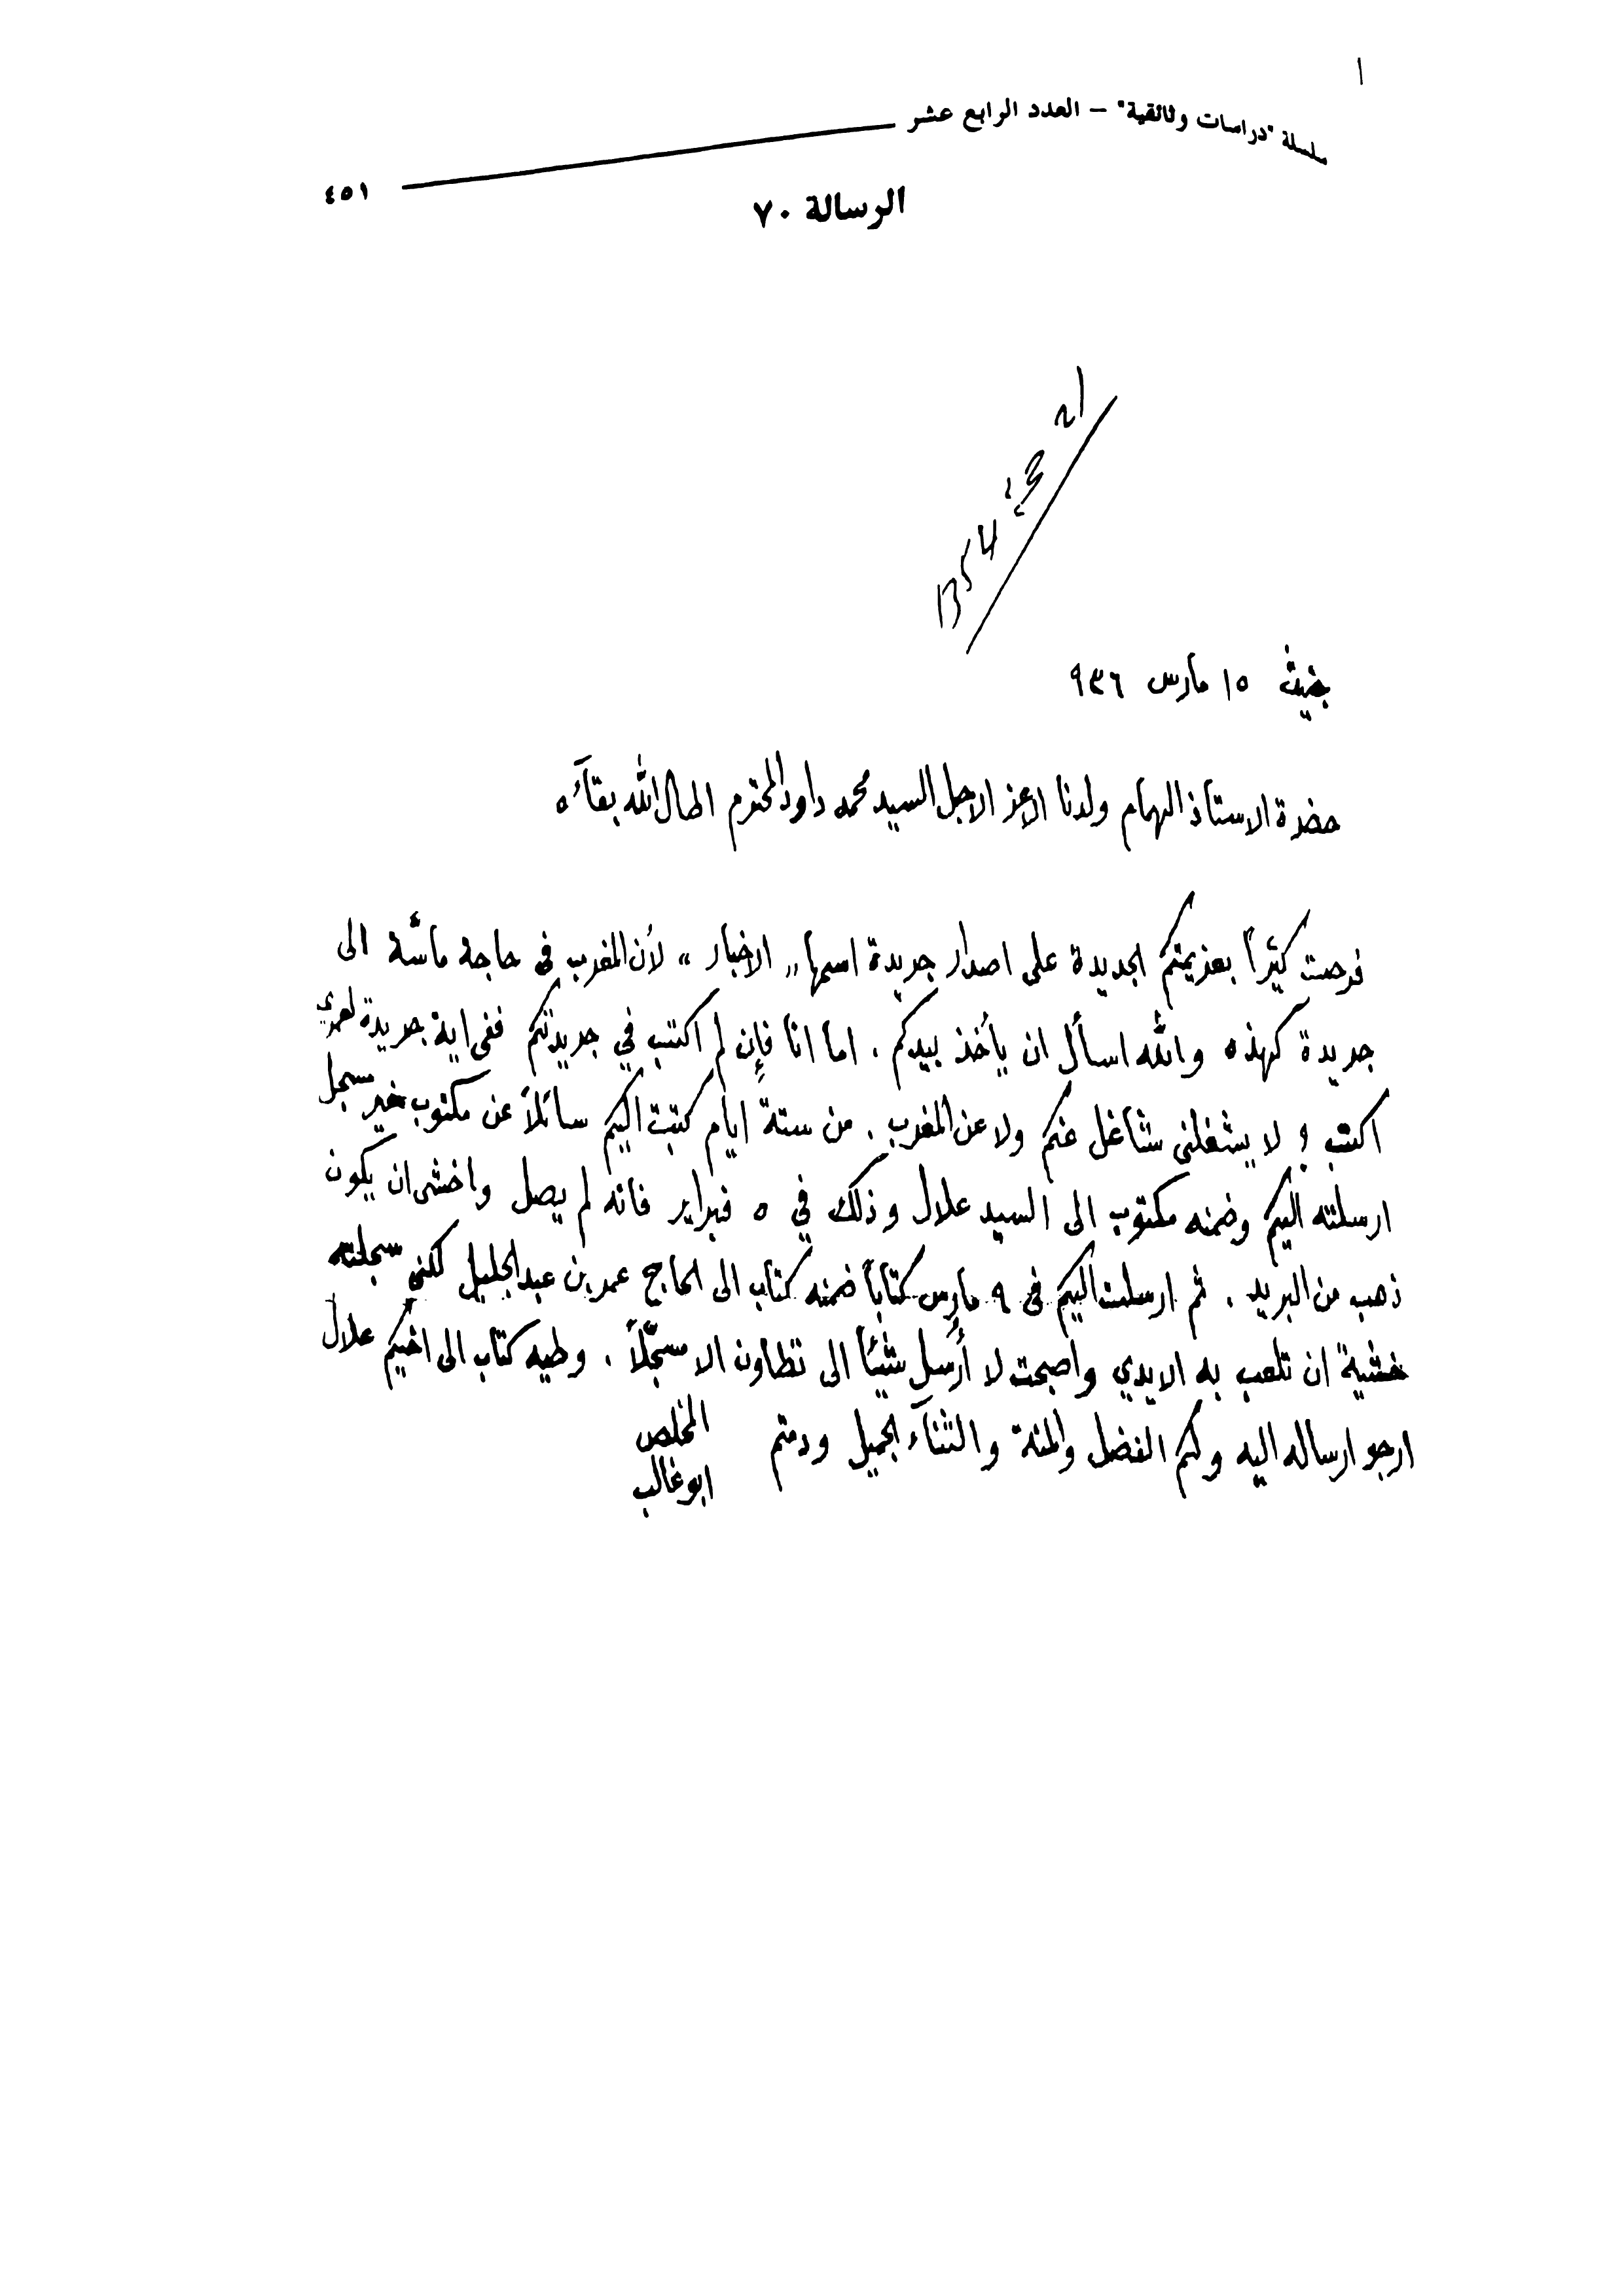 سلسلة "دراسات وثائقية" – العدد الرابع عشر
٤٥١
الرسالة ٧٠
21 حجة
1354
جنيف ١٥ مارس ٩٣٦
حضرة الاستاذ الهمام ولدنا الاعز الاجل السيد محمد داود المحترم اطال الله بقاءه
فرحت كثيراً بعزيمتكم الجديدة على اصدار جريدة اسمها „ الاخبار “ لأن المغرب في حاجة ماسّة الى
جريدة كهذه والله اسأل ان يأخذ بيدكم . اما انا فإن لم اكتب في جريدتكم ففي اية جريدة لعمري
اكتب ؟ لا يشغلني شاغل عنكم ولا عن المغرب . من ستة ايام كتبت اليكم سائلاً عن مكتوب غير مسجل
ارسلته اليكم وضمنه مكتوب الى السيد علال وذلك في ٥ فبراير فانه لم يصل واخشى ان يكون
ذهب من البريد . ثم ارسلت اليكم في ٩ مارس كتاباً ضمنه كتاب الى الحاج عمر بن عبد الجليل لكني سجلته
خشية ان تلعب به الايدي واصبحت لا أُرسل شيئاً الى تطاون الا مسجّلاً . وطيه كتاب الى اخيكم علال
ارجو ارساله اليه ولكم الفضل والمنة والثناء الجميل ودمتم
المخلص
ابو غالب